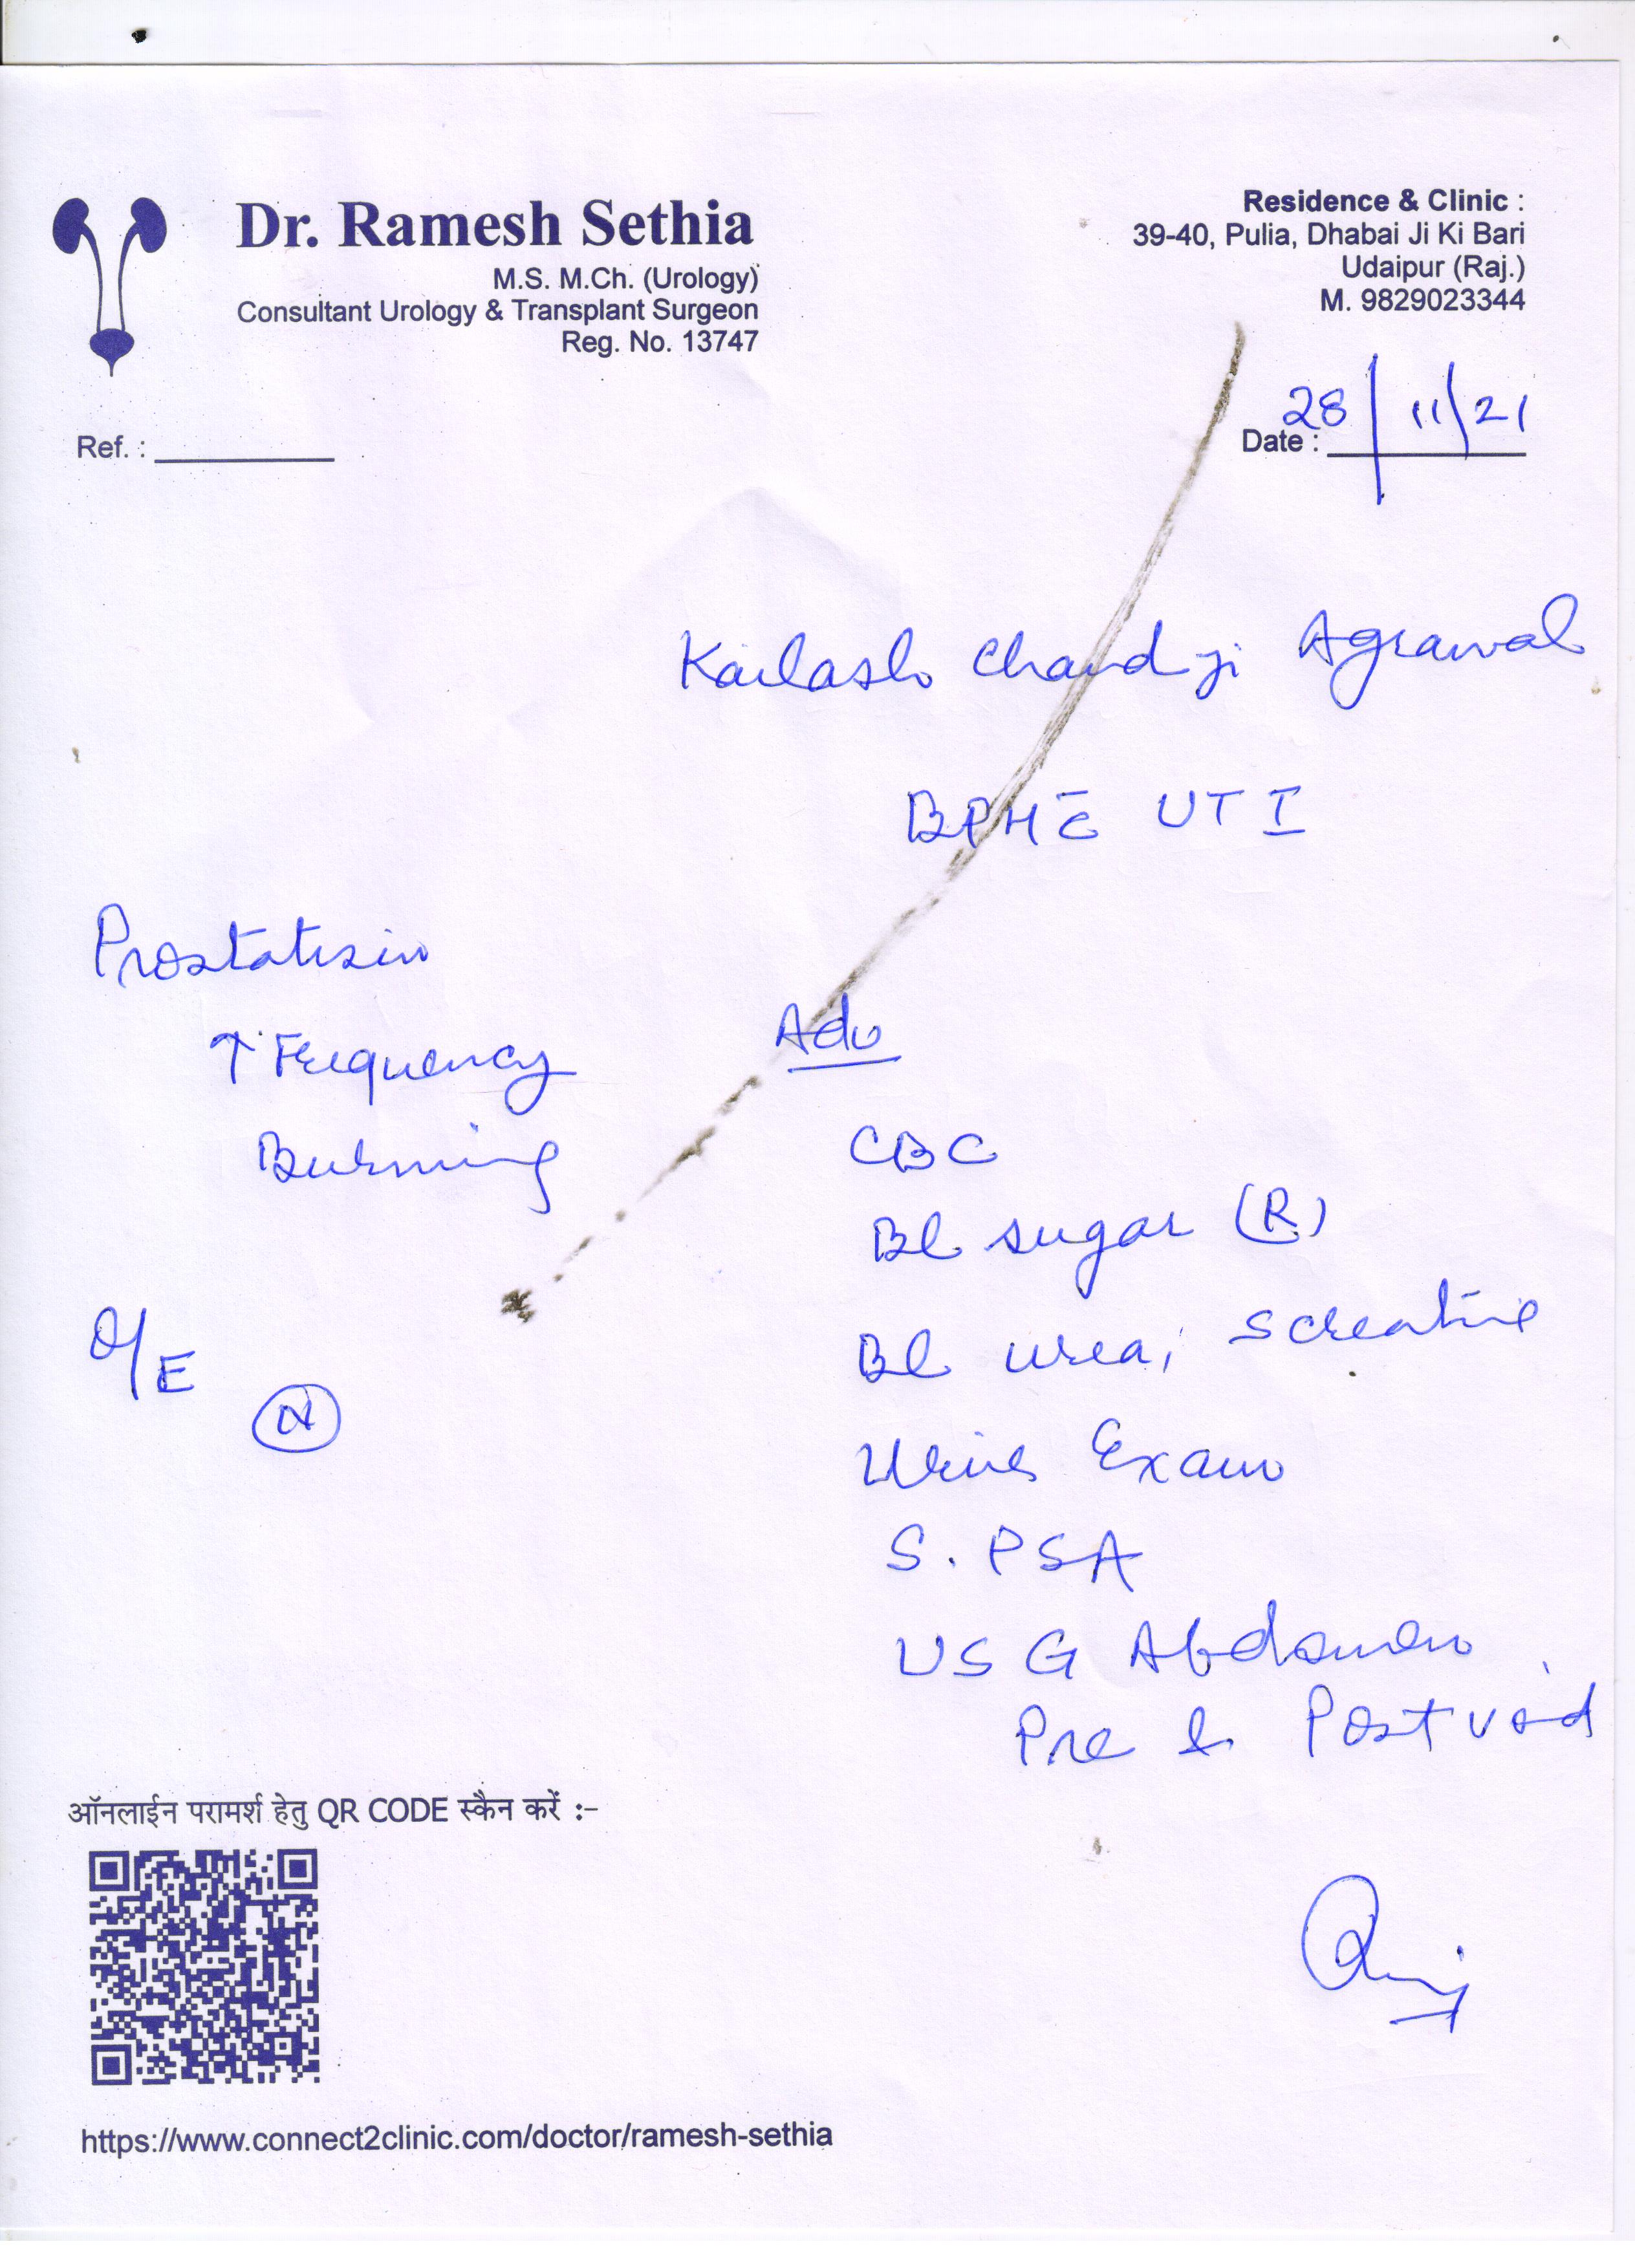 Dr. Ramesh Sethia
M.S. M.Ch. (Urology)
Consultant Urology & Transplant Surgeon
Reg. No. 13747
Residence & Clinic :
39-40, Pulia, Dhabai Ji Ki Bari
Udaipur (Raj.)
M. 9829023344
Ref. :
Date : 28/11/21
Kailash Chand ji Agrawal
BPH c̄ UTI
Prostatism
↑ Frequency
Burning
O/E
N
Adv
CBC
Bl sugar (R)
Bl urea, S creatine
Urine Exam
S. PSA
USG Abdomen
Pre & Post void
ऑनलाईन परामर्श हेतु QR CODE स्कैन करें :-
https://www.connect2clinic.com/doctor/ramesh-sethia